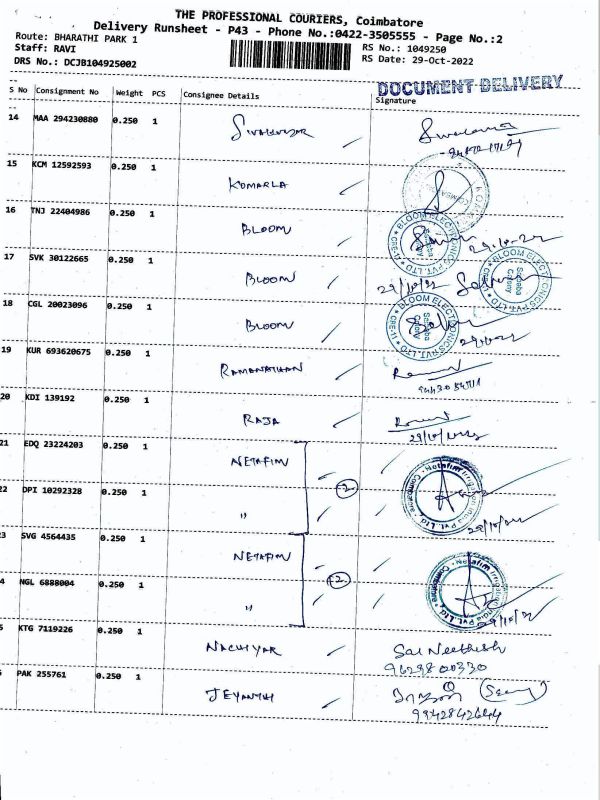 THE PROFESSIONAL COURIERS, Coimbatore
Delivery Runsheet - P43 - Phone No.:0422-3505555 - Page No.:2
Route: BHARATHI PARK 1
RS No.: 1049250
Staff: RAVI
RS Date: 29-Oct-2022
DRS No.: DCJB104925002
DOCUMENT DELIVERY
S No Consignment No Weight PCS Consignee Details Signature
14 MAA 294230880 0.250 1
15 KCM 12592593 0.250 1 KOMARLA
16 TNJ 22404986 0.250 1 BLOOM
BLOOM ELECTRONICS PVT. LTD
29-10-22
17 SVK 30122665 0.250 1 BLOOM
29/10/22
BLOOM ELECTRONICS PVT. LTD
Saibaba Colony
18 CGL 20023096 0.250 1 BLOOM
BLOOM ELECTRONICS PVT. LTD
Saibaba Colony
19 KUR 693620675 0.250 1 RAMANATHAN
20 KDI 139192 0.250 1 RAJA
21 EDQ 23224203 0.250 1 NETAFIM
Netafim Irrigation India Pvt. Ltd. Coimbatore
22 DPI 10292328 0.250 1 "
2
29/10/22
3 SVG 4564435 0.250 1 NETAFIM
Netafim Irrigation India Pvt. Ltd. Coimbatore
4 NGL 6888004 0.250 1 "
2
29/10/22
5 KTG 7119226 0.250 1 NACHIYAR
Sai Neethish
9629800330
PAK 255761 0.250 1 JEYANTHI
9942842644